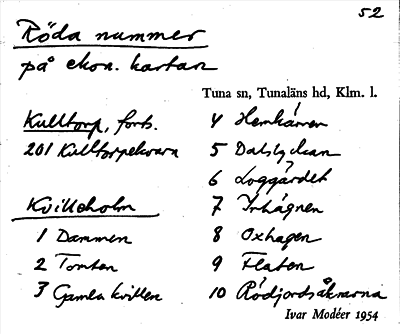 52
Röda nummer
på ekon. kartan
Tuna sn, Tunaläns hd, Klm. l.
Kulltorp, forts.
201 Kulltorpekvarn
Kvilleholm
1 Dammen
2 Tomten
3 Gamla kvillen
4 Hemkärren
5 Dalslyckan
6 Loggärdet
7
8 Oxhagen
9 Flaten
10 Rödjordsåkrarna
Ivar Modéer 1954